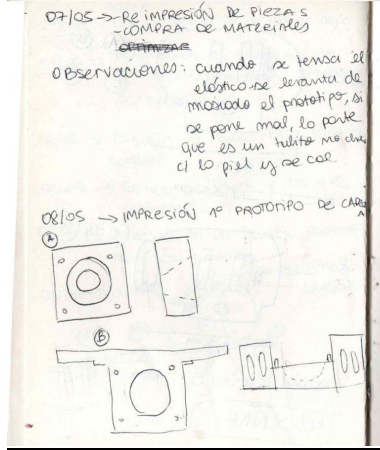 07/05 → REIMPRESIÓN DE PIEZAS
- COMPRA DE MATERIALES
OPTIMIZAR
OBSERVACIONES: cuando se tensa el
elástico se levanta de
masiado el prototipo, si
se pone mal, la parte
que es un tulito no
c/ la piel y se cae
08/05 → IMPRESIÓN 1º PROTOTIPO DE CARCA
A
A
B